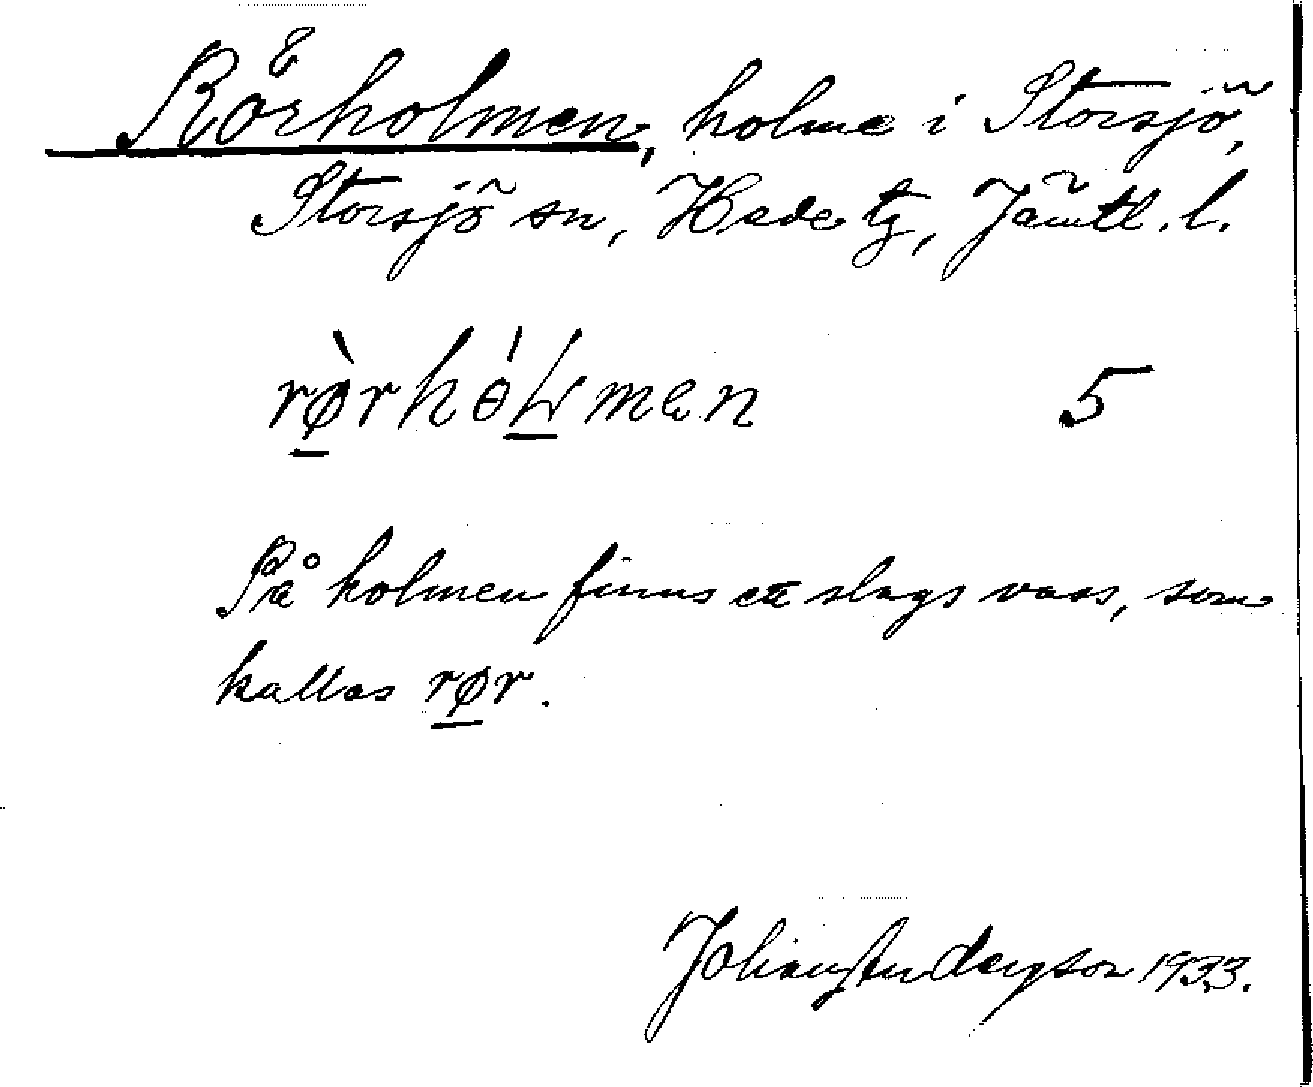 Rörholmen, holme i Storsjö,
Storsjö sn, Hede tg, Jämtl. l.
rø̀rhóḻmen 5
På holmen finns ett slags vass, som
kallas rør.
Johan Anderson 1933.